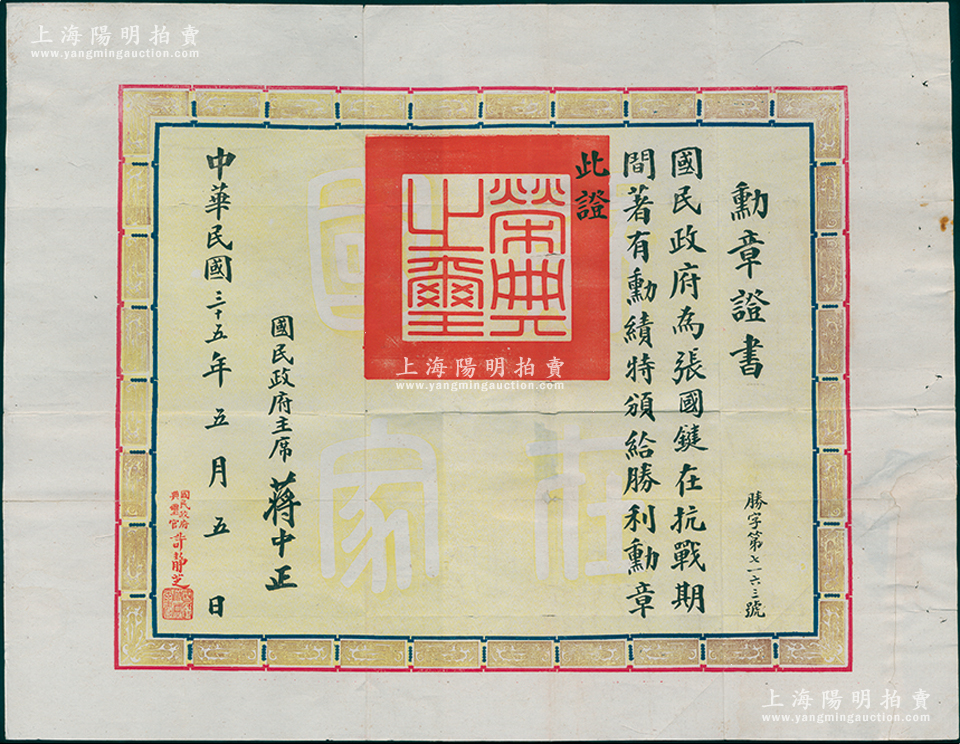 上海陽明拍賣
www.yangmingauction.com
勳章證書
勝字第七一六三號
國民政府為張國鍵在抗戰期
間著有勳績特頒給勝利勳章
此證
榮典之璽
國民政府主席 蔣中正
中華民國三十五年五月五日
國民政府
典璽官 許靜芝
上海陽明拍賣
www.yangmingauction.com
上海陽明拍賣
www.yangmingauction.com